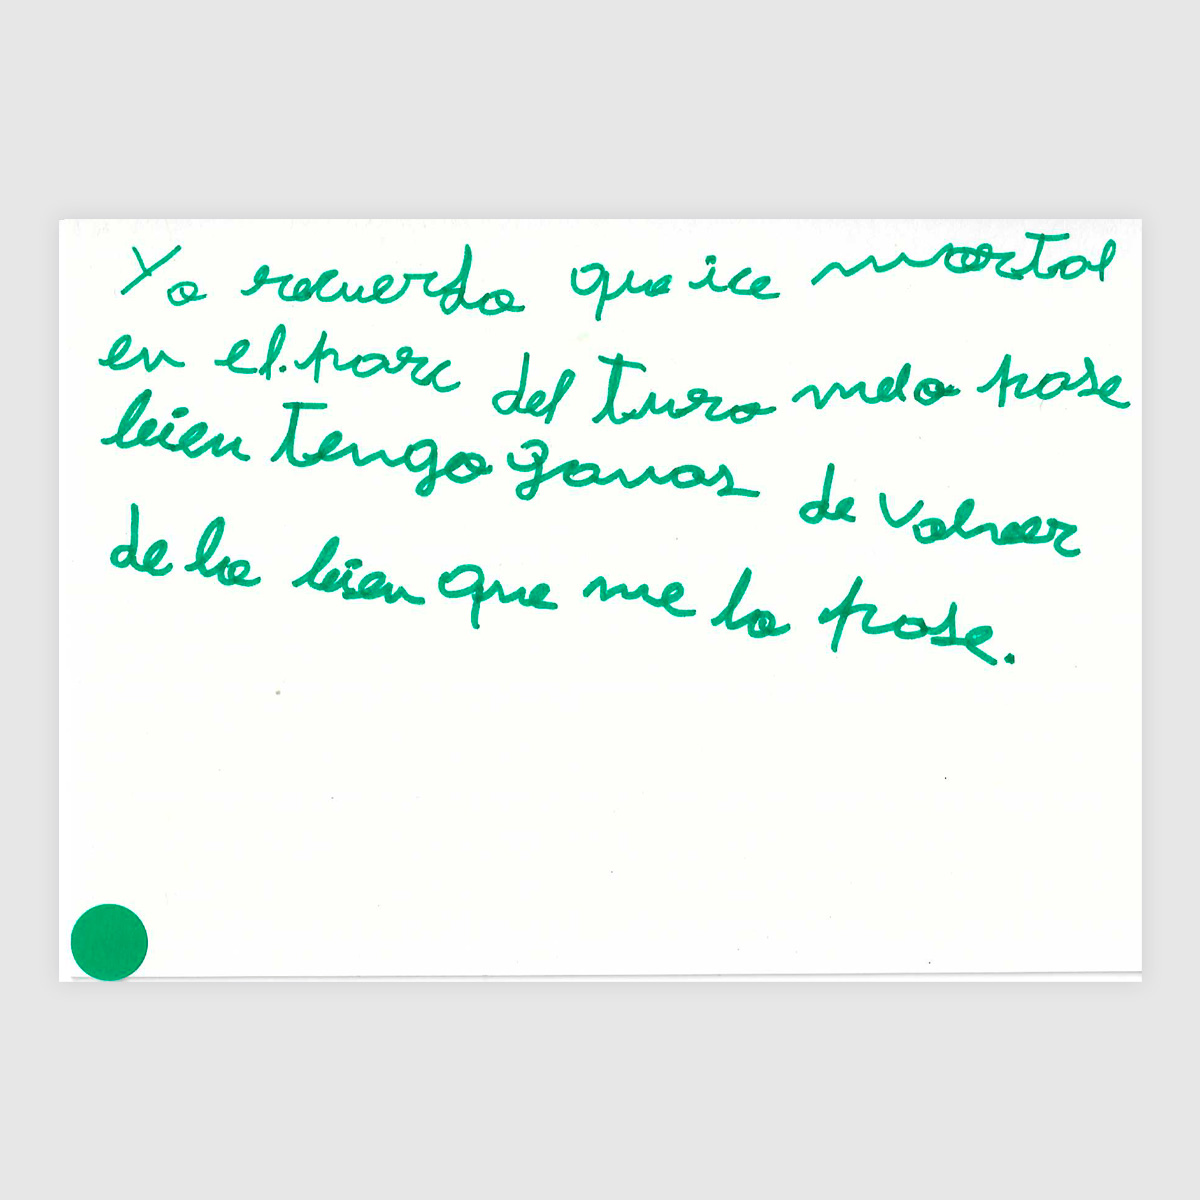 Yo recuerdo que ice mortal
en el. parc del turo melo pase
bien tengo ganas de volver
de lo bien que me lo pase.